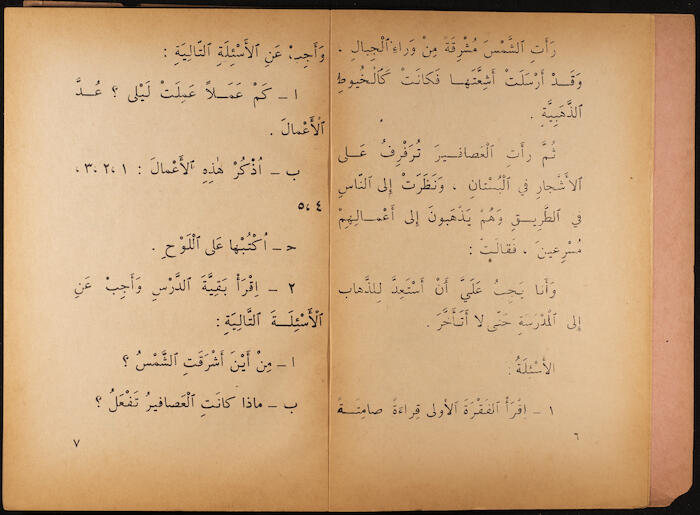 رَأَتِ ٱلشَّمْسَ مُشْرِقَةً مِنْ وَراءِ ٱلْجِبالِ .
وَقَدْ أَرْسَلَتْ أَشِعَّتَها فَكانَتْ كَٱلْخُيوطِ
ٱلذَّهَبِيَّةِ .
ثُمَّ رَأَتِ ٱلْعَصافيرَ تُرَفْرِفُ عَلى
ٱلأَشْجارِ في ٱلْبُسْتانِ ، وَنَظَرَتْ إِلى ٱلنّاسِ
في ٱلطَّريقِ وَهُمْ يَذْهَبونَ إِلى أَعْمالِهِمْ
مُسْرِعينَ ، فَقالَتْ :
وَأَنا يَجِبُ عَلَيَّ أَنْ أَسْتَعِدَّ لِلذَّهابِ
إِلى ٱلْمَدْرَسَةِ حَتّى لا أَتَأَخَّرَ .
ٱلأَسْئِلَةُ :
١ – اِقْرَأْ ٱلْفَقْرَةَ ٱلأولى قِراءَةً صامِتَةً
٦
وَأَجِبْ عَنِ ٱلأَسْئِلَةِ ٱلتّالِيَةِ :
ا – كَمْ عَمَلاً عَمِلَتْ لَيْلى ؟ عُدَّ
ٱلْأَعْمالَ .
ب – اُذْكُرْ هٰذِهِ ٱلأَعْمالَ : ١ ، ٢ ، ٣ ،
٤ ، ٥
حـ – اُكْتُبْها عَلى ٱللَّوْحِ .
٢ – اِقْرَأْ بَقِيَّةَ ٱلدَّرْسِ وَأَجِبْ عَنِ
ٱلْأَسْئِلَةِ ٱلتّالِيَةِ :
ا – مِنْ أَيْنَ أَشْرَقَتِ ٱلشَّمْسُ ؟
ب – ماذا كانَتِ ٱلْعَصافيرُ تَفْعَلُ ؟
٧